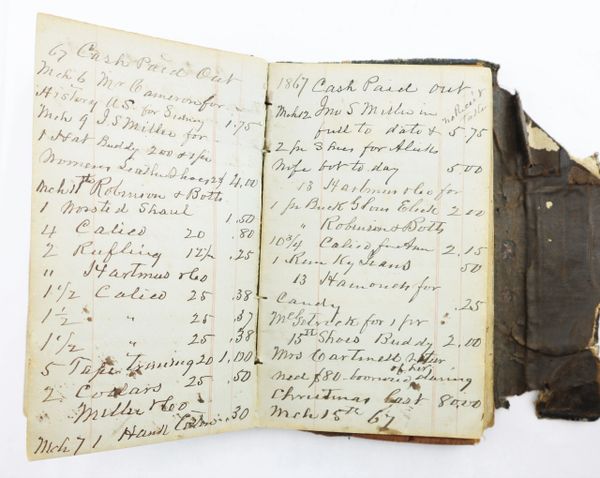 67 Cash Paid Out
Mch 6 Mr Cameron for
History U.S. for Sidney 1.75
Mch 9 J S Miller for
1 Hat Buddy 200 & 1 pr
Womens Leather Shoes 2 4.00
Mch 11th Robinson & Botts
1 Worsted Shaul 1.50
4 Calico 20 .80
2 Rufling 12½ .25
" Hartmus & Co
1 1/2 Calico 25 .38
1 1/2 " 25 .37
1 1/2 " 25 .38
5 Tape Triming 20 1.00
2 Coolars 25 .50
Miller & Co
Mch 7 1 Handk .30
1867 Cash Paid out
Mch 12 Jno S Miller in
full to date & 5.75
no Recei't
2 pr Shoes for &
Wife bot to day 5.00
13 Hartmus & Co for
1 pr Buck Gloves 2.00
" Robinson & Botts
10 3/4 Calico for 2.15
1 Rem Ky Jeans 50
13 for
Candy .25
for 1 pr
15th Shoes Buddy 2.00
Mrs Cartmell
of her
ned $80 borrowed during
Christmas last 80.00
Mch 15th 67